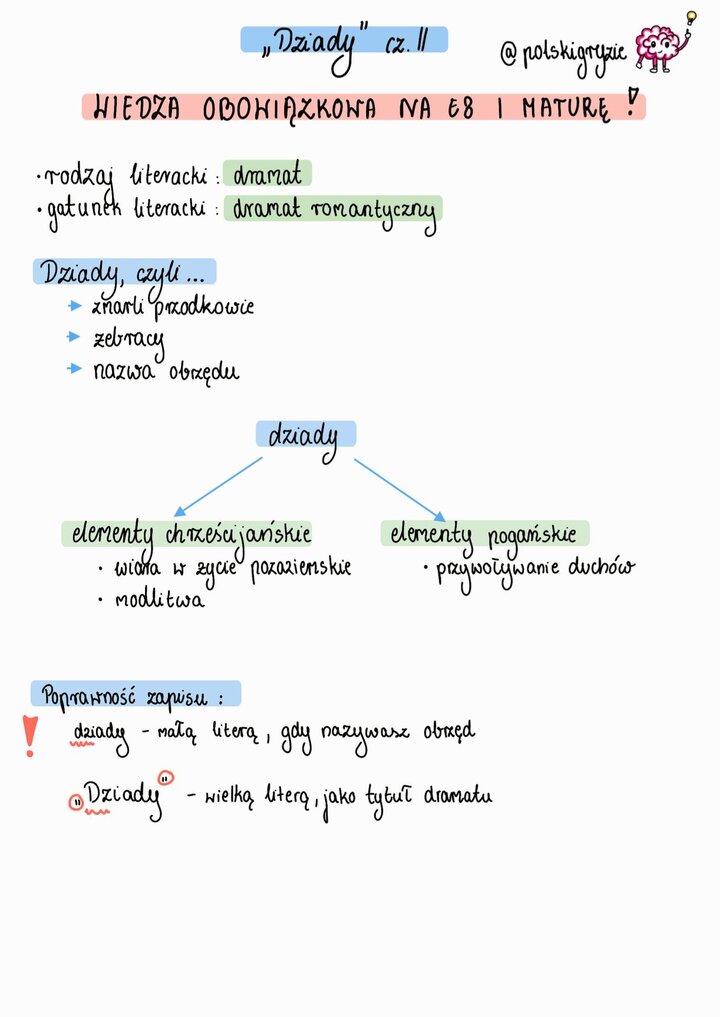 „Dziady" cz. II
@polskigryzie
WIEDZA OBOWIĄZKOWA NA E8 I MATURĘ !
• rodzaj literacki : dramat
• gatunek literacki : dramat romantyczny
Dziady, czyli ...
zmarli przodkowie
żebracy
nazwa obrzędu
dziady
elementy chrześcijańskie
elementy pogańskie
• wiara w życie pozaziemskie
• przywoływanie duchów
• modlitwa
Poprawność zapisu :
! dziady - małą literą, gdy nazywasz obrzęd
"Dziady" - wielką literą, jako tytuł dramatu